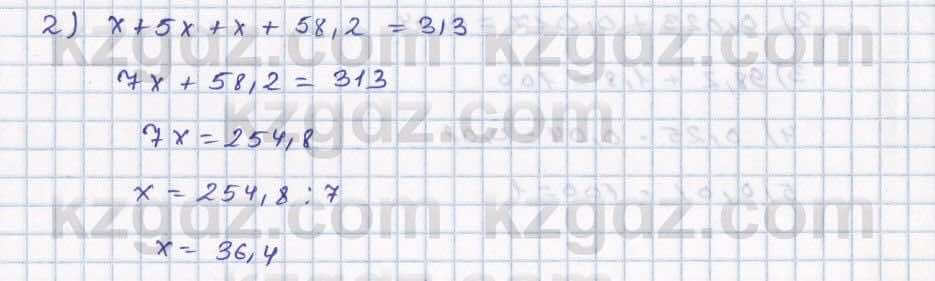 2) x + 5x + x + 58,2 = 313
7x + 58,2 = 313
7x = 254,8
x = 254,8 : 7
x = 36,4
kzgdz.com kzgdz.com
kzgdz.com
kzgdz.com kzgdz.com